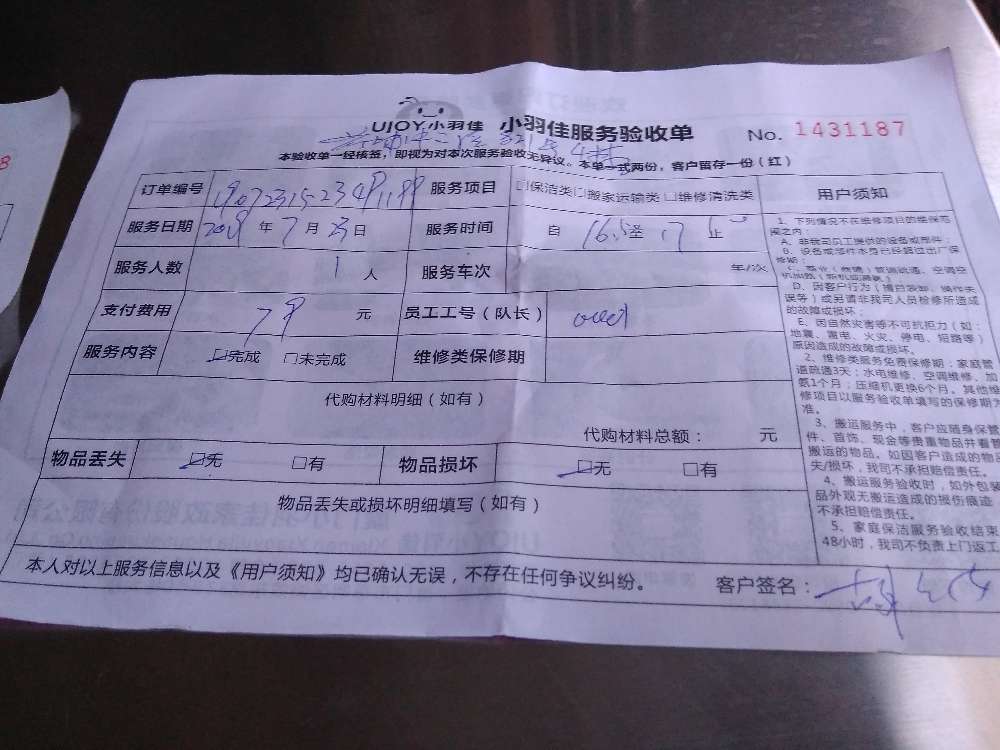 UJOY小羽佳 小羽佳服务验收单 No. 1431187
本验收单一经核签，即视为对本次服务验收无异议。本单一式两份，客户留存一份（红）
订单编号 服务项目 □保洁类□搬家运输类□维修清洗类 用户须知
服务日期 年 7 月 23 日 服务时间 自 16.5 至 17 止
服务人数 1 人 服务车次 年/次
支付费用 79 元 员工工号（队长）
服务内容 □完成 □未完成 维修类保修期
代购材料明细（如有）
代购材料总额： 元
物品丢失 □无 □有 物品损坏 □无 □有
物品丢失或损坏明细填写（如有）
本人对以上服务信息以及《用户须知》均已确认无误，不存在任何争议纠纷。 客户签名：
1、下列情况不在维修项目的维保范
围之内：
A、非我司员工提供的设备或部件；
B、设备或部件本身已经超过出厂保
修期；
D、因客户行为（擅自装卸、操作失
误等）或另请非我司人员检修所造成
的故障或损坏；
E、因自然灾害等不可抗拒力（如：
地震、雷电、火灾、停电、短路等）
原因造成的故障或损坏。
2、维修类服务免费保修期：家庭管
道疏通3天；水电维修、空调维修、加
氨1个月；压缩机更换6个月。其他维
修项目以服务验收单填写的保修期为
准。
3、搬运服务中，客户应随身保管
件、首饰、现金等贵重物品并看管
搬运的物品。如因客户造成的物品
失/损坏，我司不承担赔偿责任。
4、搬运服务验收时，如外包装
品外观无搬运造成的损伤痕迹
不承担赔偿责任。
5、家庭保洁服务验收结束
48小时，我司不负责上门返工